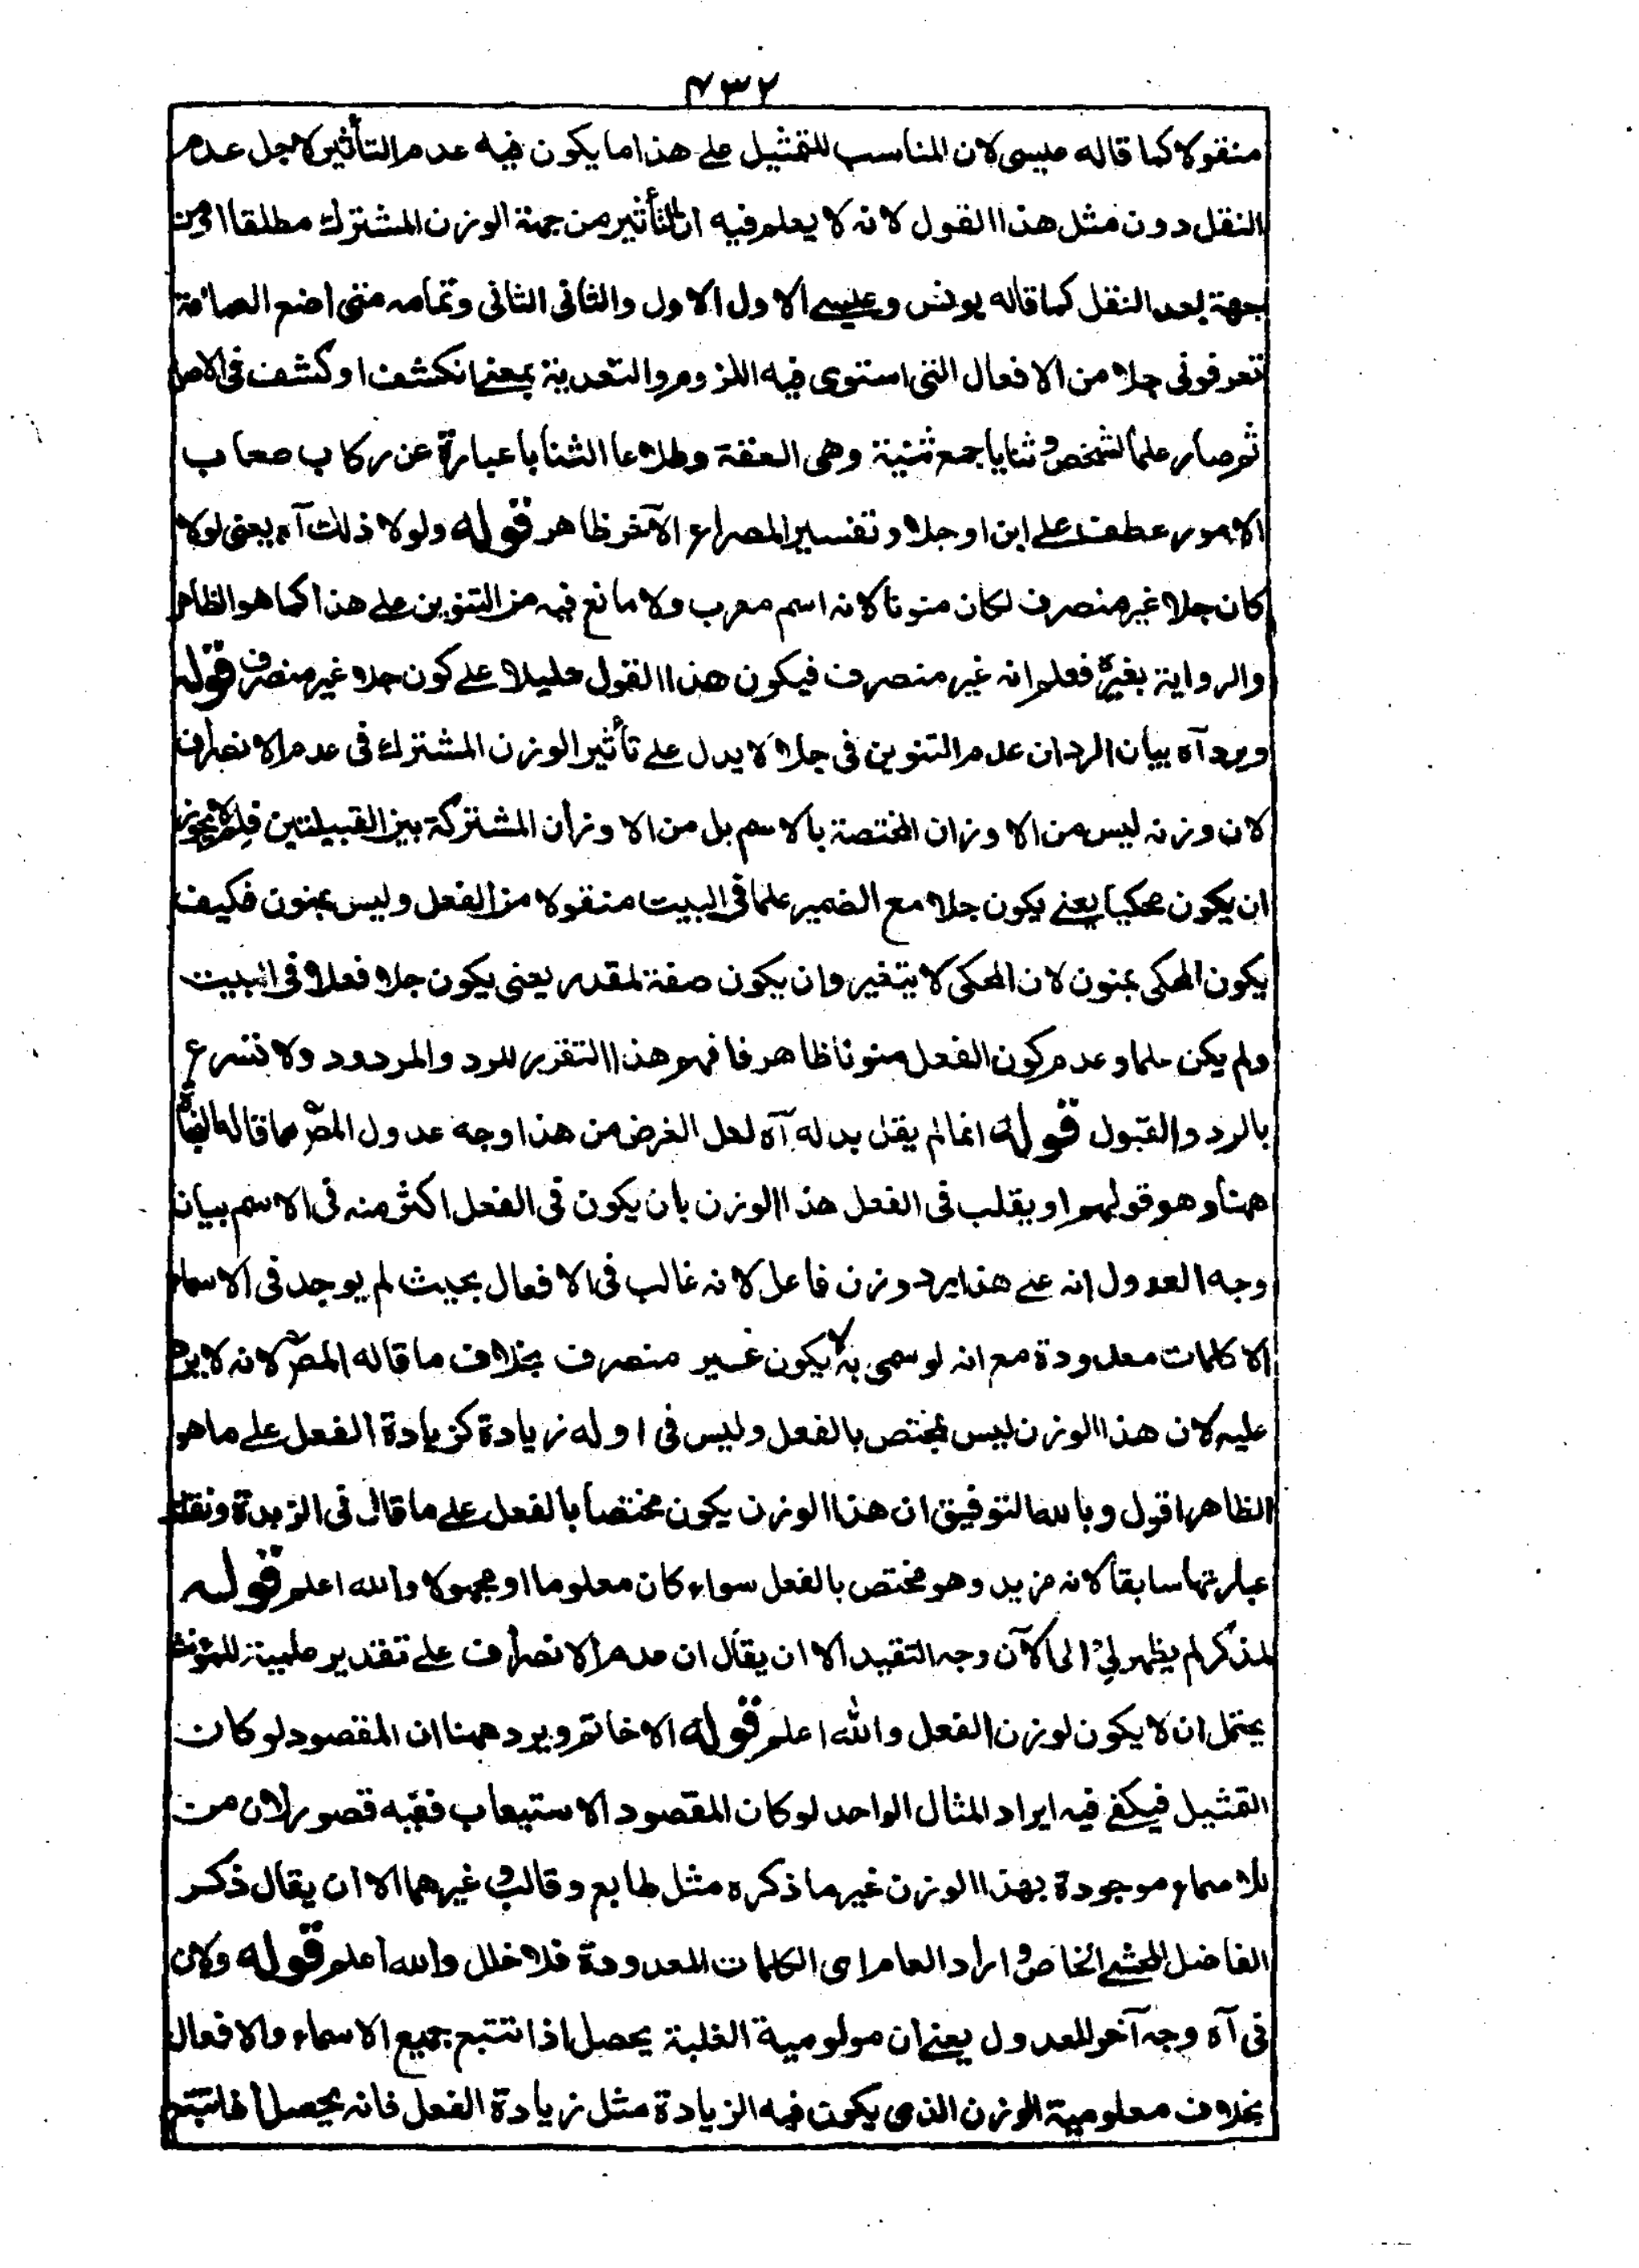 ۴۳۲
منقولا كما قاله عيسى لان المناسب للتمثيل على هذا ما يكون فيه عدم التأثير لاجل عدم
النقل دون مثل هذا القول لانه لا يعلم فيه ان التأثير من جهة الوزن المشترك مطلقا او من
جهة بعد النقل كما قاله يونس وعيسى الاول الاول والثانى الثانى وتمامه متى اضع العمامة
تعرفونى جلا من الافعال التى استوى فيه اللزوم والتعدية بمعنى انكشف او كشف فى الاصل
ثم صار علما لشخص وثنايا جمع ثنية وهى العقبة وطلاعا الثنايا عبارة عن ركاب صعاب
الامور عطف على ابن او جلا وتفسير المصراع الآخر ظاهر قوله ولولا ذلك آه يعنى لولا
كان جلا غير منصرف لكان منونا لانه اسم معرب ولا مانع فيه من التنوين على هذا كما هو الظاهر
والرواية بغيره فعلم انه غير منصرف فيكون هذا القول دليلا على كون جلا غير منصرف قوله
ويرد آه بيان الرد ان عدم التنوين فى جلا لا يدل على تأثير الوزن المشترك فى عدم الانصراف
لان وزنه ليس من الاوزان المختصة بالاسم بل من الاوزان المشتركة بين القبيلتين فلم لا يجوز
ان يكون محكيا يعنى يكون جلا مع الضمير علما فى البيت منقولا من الفعل وليس بمنون فكيف
يكون المحكى بمنون لان المحكى لا يتغير وان يكون صفة لمقدر يعنى يكون جلا فعلا فى البيت
ولم يكن علما وعدم كون الفعل منونا ظاهر فافهم هذا التقرير للرد والمردود ولا تسرع
بالرد والقبول قوله انما لم يقل بدله آه لعل الغرض من هذا وجه عدول المصر عما قاله النحاة
ههنا وهو قولهم او يقلب فى الفعل هذا الوزن بان يكون فى الفعل اكثر منه فى الاسم بيان
وجه العدول انه على هذا يرد وزن فاعل لانه غالب فى الافعال بحيث لم يوجد فى الاسماء
الا كلمات معدودة مع انه لو سمى به لا يكون غير منصرف بخلاف ما قاله المصر لانه لا يرد
عليه لان هذا الوزن ليس بمختص بالفعل وليس فى اوله زيادة كزيادة الفعل على ما هو
الظاهر اقول وبالله التوفيق ان هذا الوزن يكون مختصا بالفعل على ما قال فى الزبدة ونقلت
عبارتها سابقا لانه مزيد وهو مختص بالفعل سواء كان معلوما او مجهولا والله اعلم قوله
لمذكر لم يظهر لى الى الآن وجه التقييد الا ان يقال ان عدم الانصراف على تقدير علمية للمؤنث
يحتمل ان لا يكون لوزن الفعل والله اعلم قوله الا خاتم ويرد ههنا ان المقصود لو كان
التمثيل فيكفى فيه ايراد المثال الواحد لو كان المقصود الاستيعاب ففيه قصور لان من
الاسماء موجودة بهذا الوزن غير ما ذكره مثل طابع وقالب وغيرهما الا ان يقال ذكر
الفاضل المحشى الخاص واراد العام اى الكلمات المعدودة فلا خلل والله اعلم قوله ولان
فى آه وجه آخر للعدول يعنى ان معلومية الغلبة يحصل اذا تتبع جميع الاسماء والافعال
بخلاف معلومية الوزن الذى يكون فيه الزيادة مثل زيادة الفعل فانه يحصل اذا تتبع